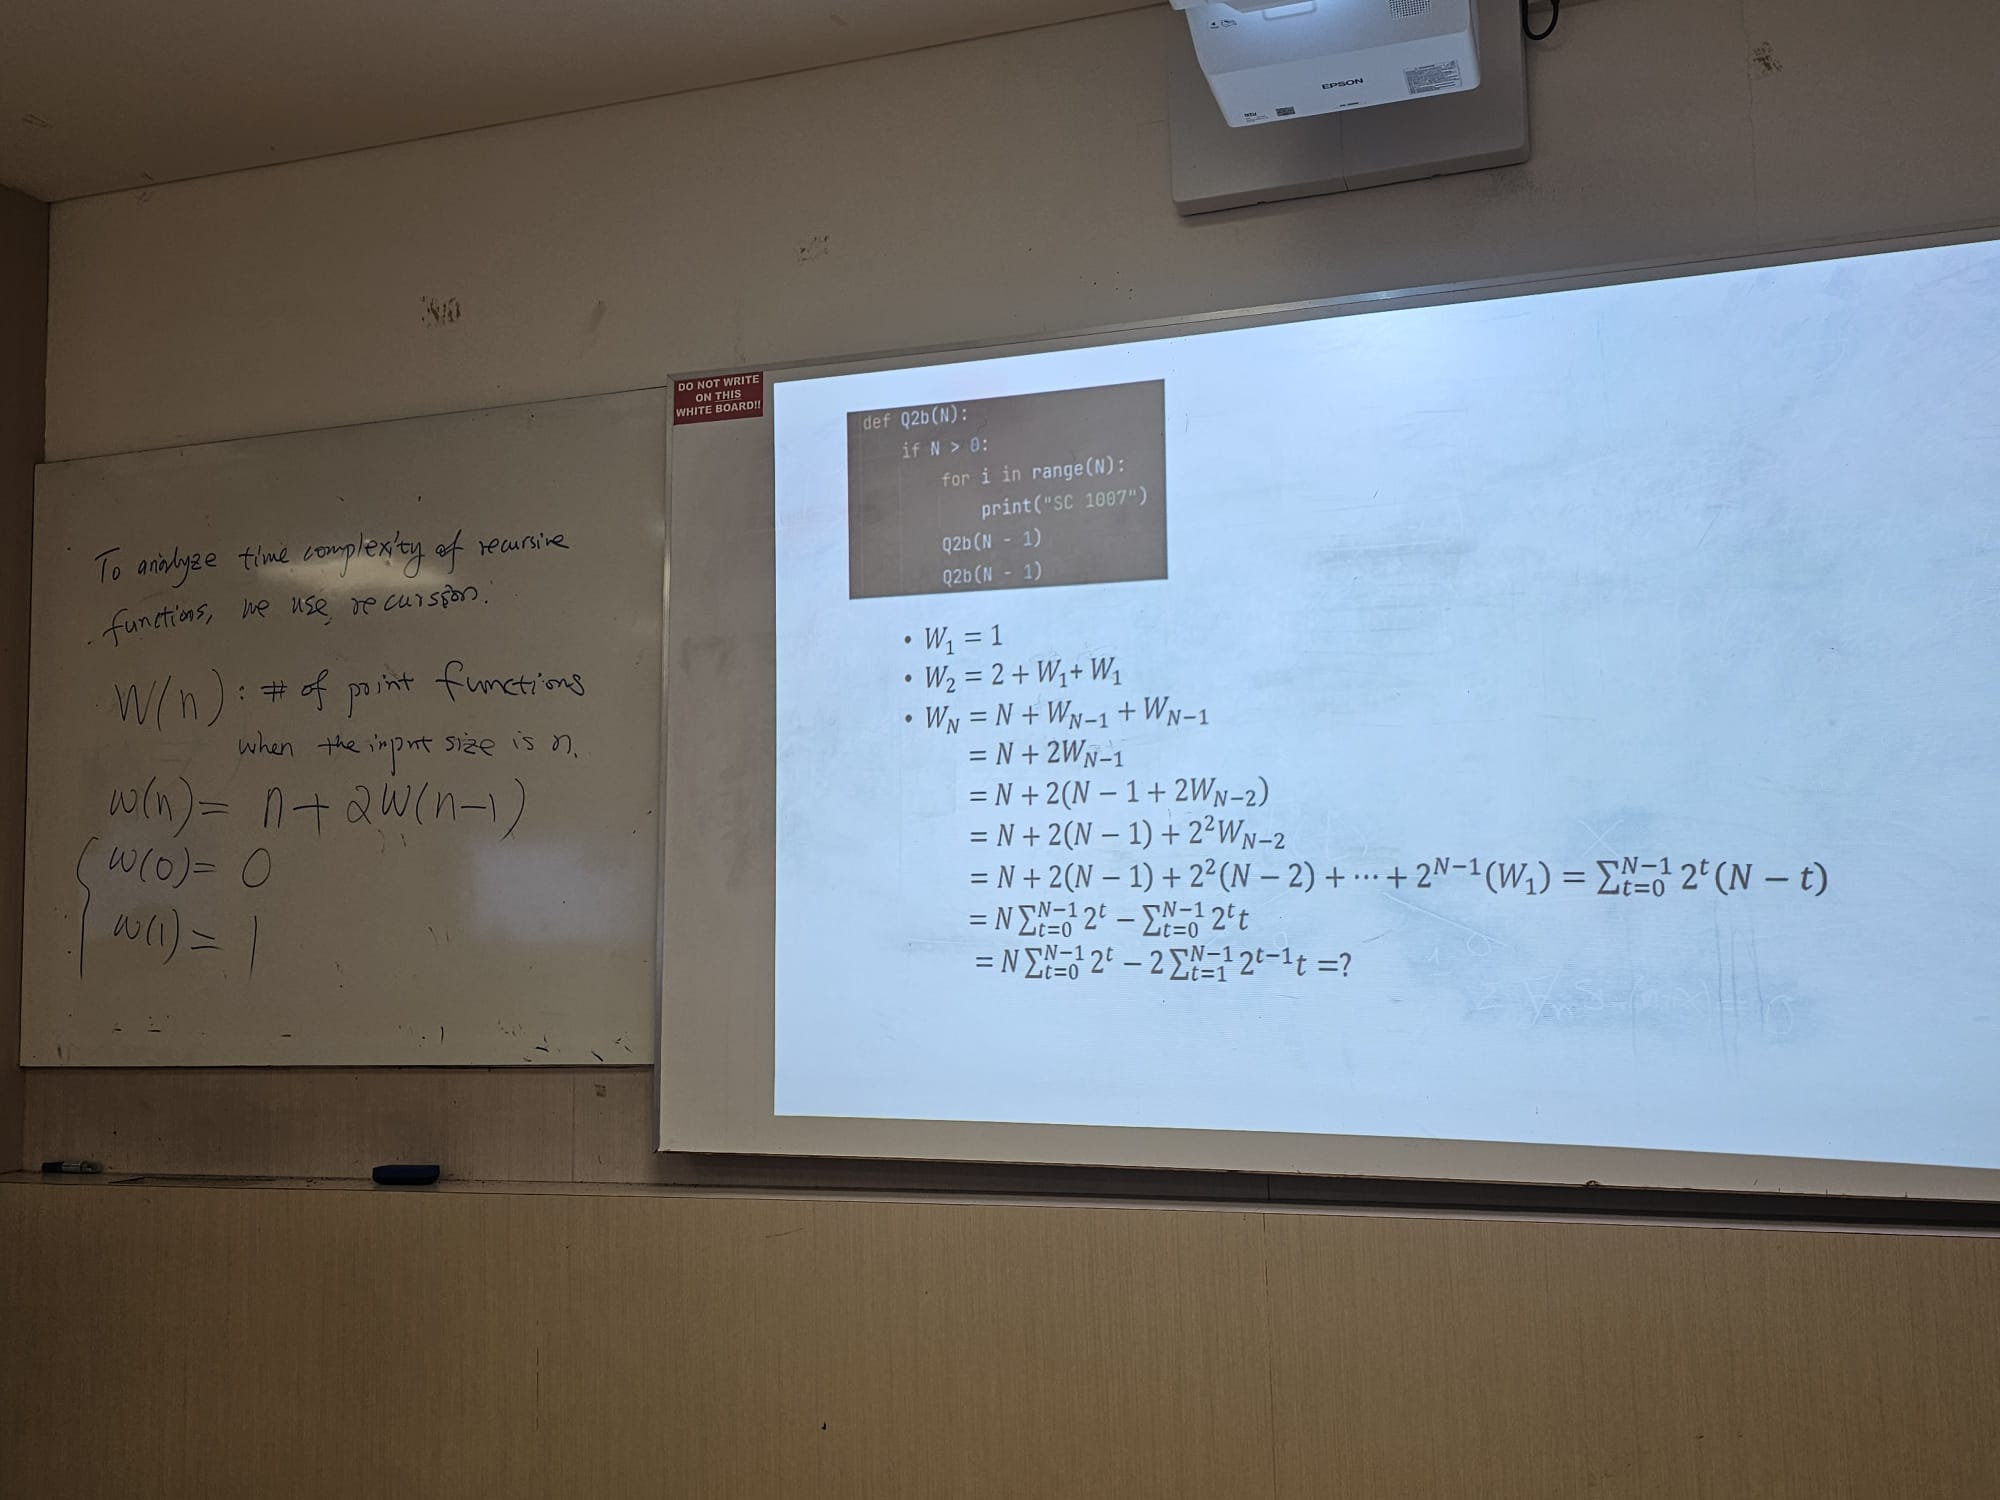 EPSON
DO NOT WRITE
ON THIS
WHITE BOARD!!
To analyze time complexity of recursive
functions, we use recursion.
W(n): # of print functions
when the input size is n.
W(n) = n + 2W(n-1)
W(0) = 0
W(1) = 1
def Q2b(N):
if N > 0:
for i in range(N):
print("SC 1007")
Q2b(N - 1)
Q2b(N - 1)
• W₁ = 1
• W₂ = 2 + W₁ + W₁
• W_N = N + W_{N−1} + W_{N−1}
= N + 2W_{N−1}
= N + 2(N − 1 + 2W_{N−2})
= N + 2(N − 1) + 2²W_{N−2}
= N + 2(N − 1) + 2²(N − 2) + ⋯ + 2^{N−1}(W₁) = ∑_{t=0}^{N−1} 2^t (N − t)
= N ∑_{t=0}^{N−1} 2^t − ∑_{t=0}^{N−1} 2^t t
= N ∑_{t=0}^{N−1} 2^t − 2 ∑_{t=1}^{N−1} 2^{t−1} t =?